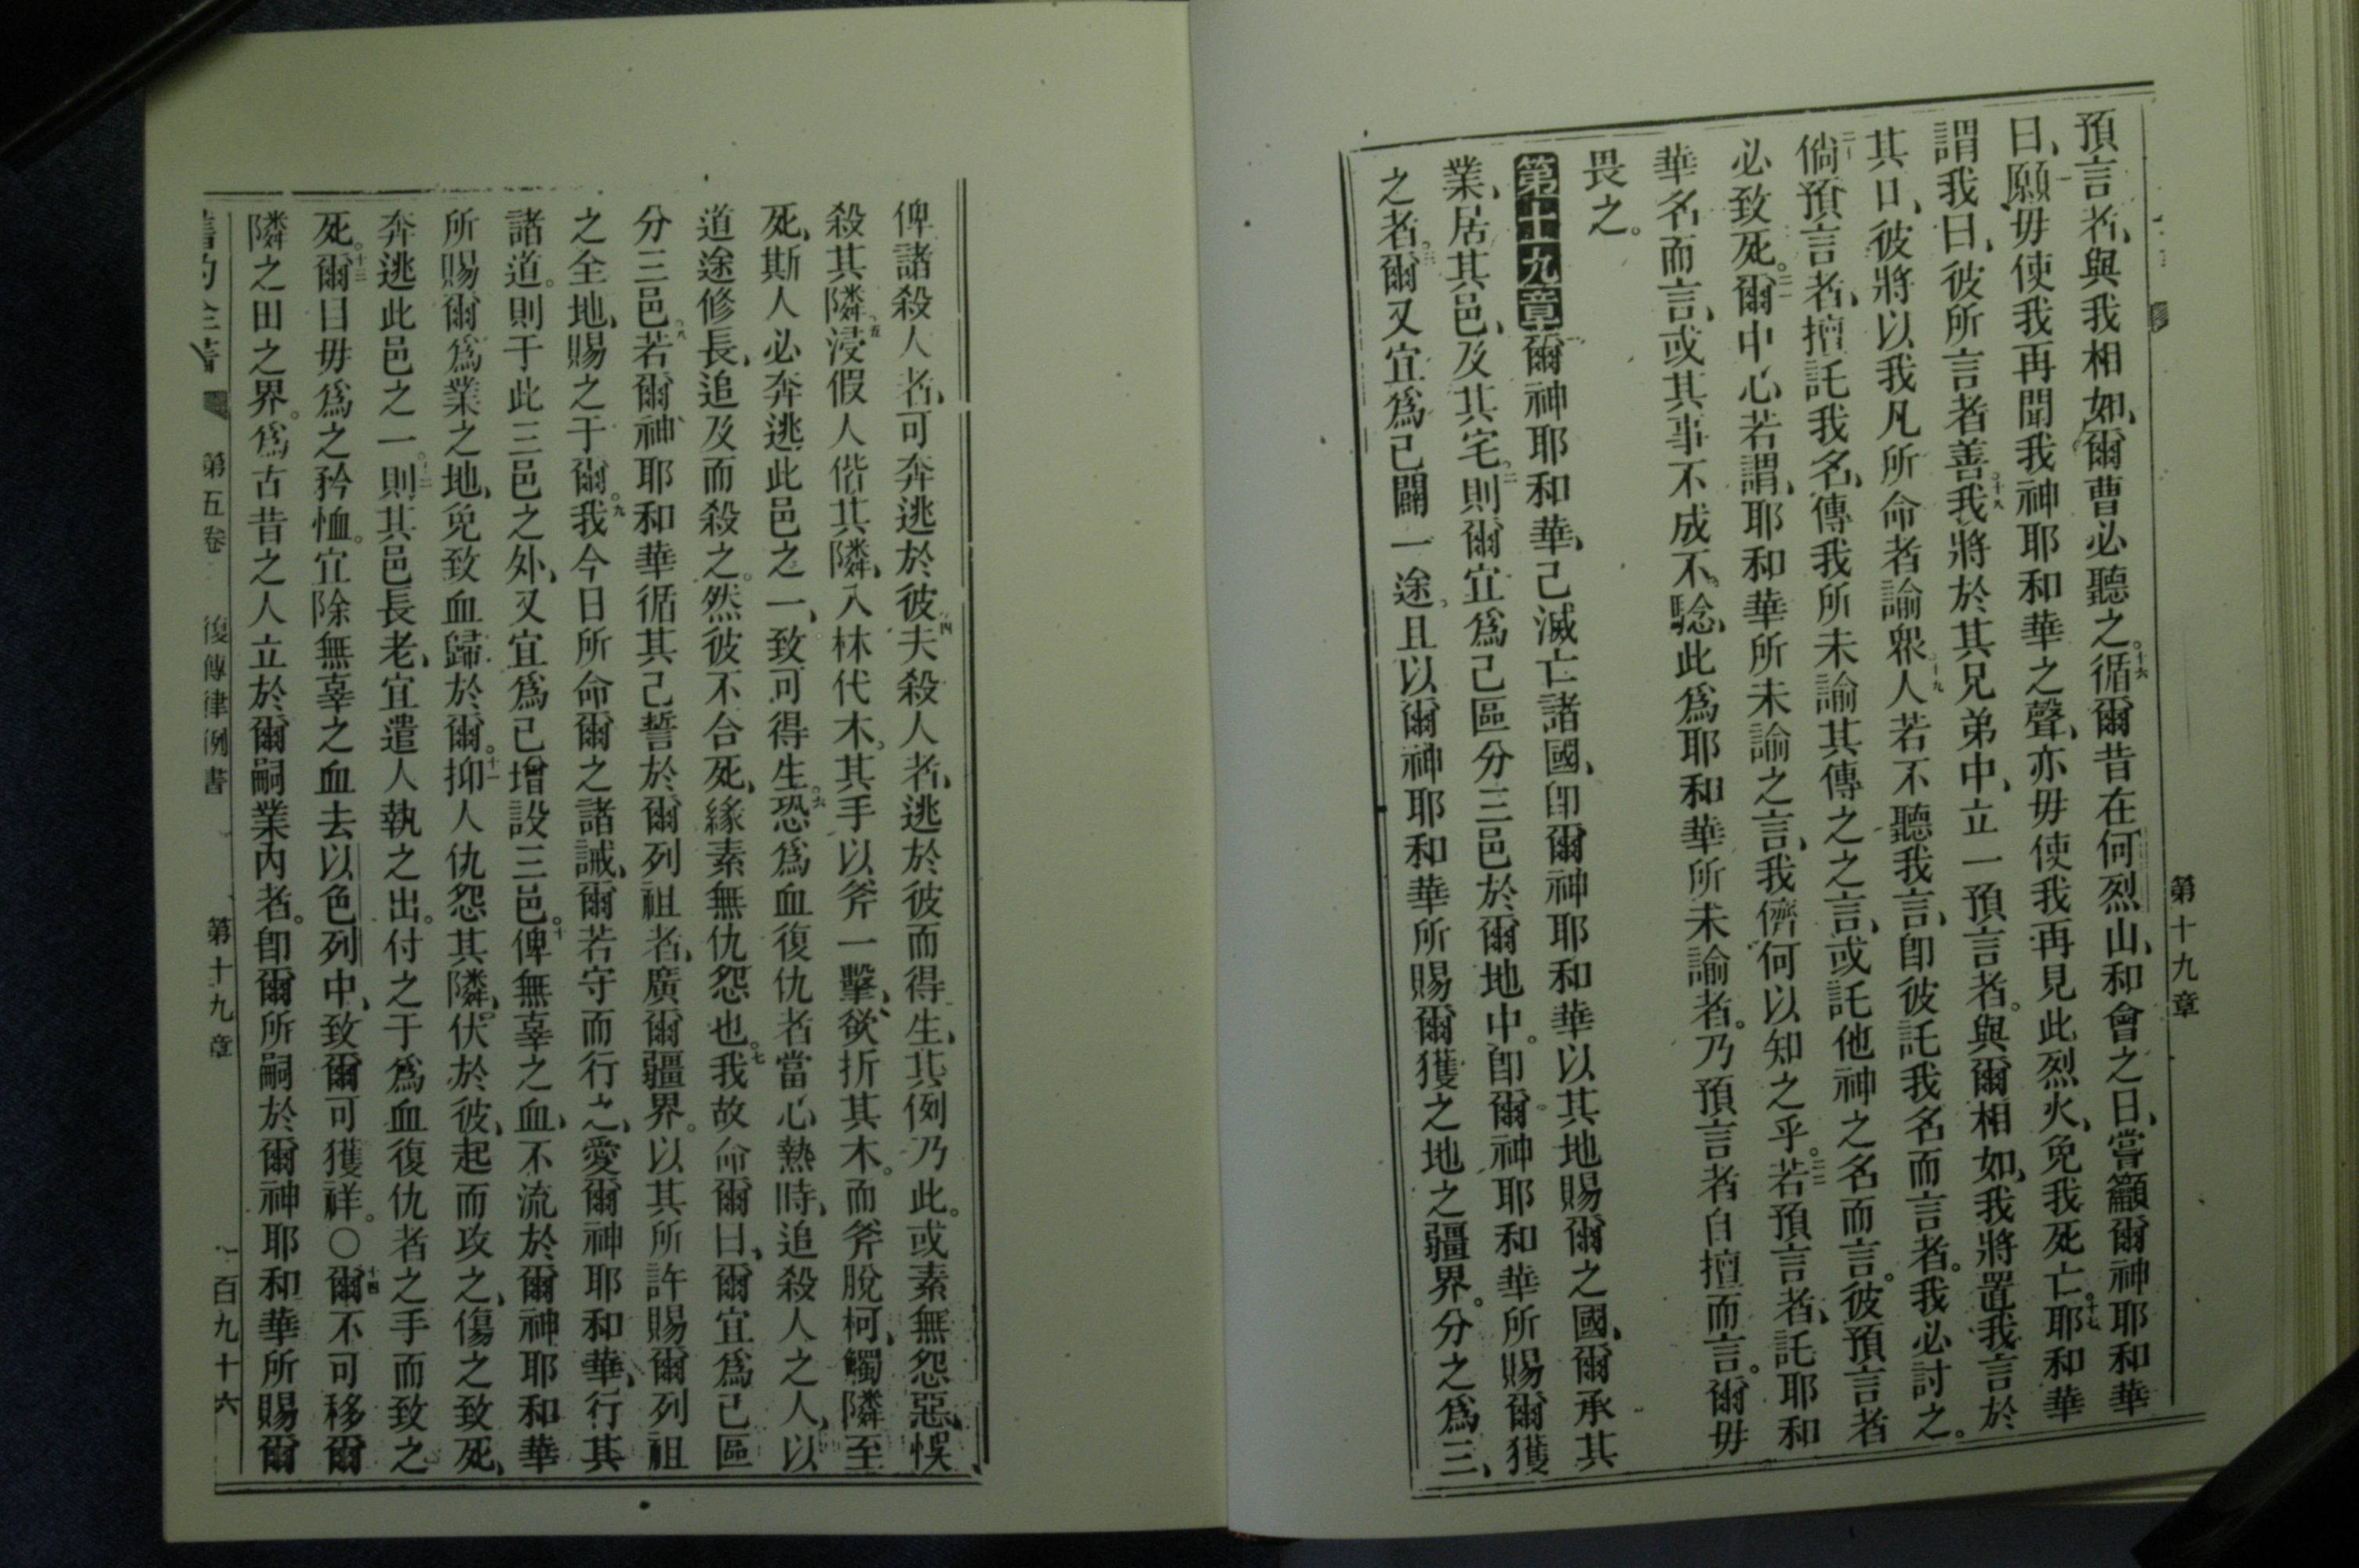 預言者、與我相如、爾曹必聽之。十六循爾昔在何烈山、和會之日、嘗籲爾神耶和華
曰、願毋使我再聞我神耶和華之聲、亦毋使我再見此烈火、免我死亡。十七耶和華
謂我曰、彼所言者善。十八我將於其兄弟中、立一預言者。與爾相如、我將置我言於
其口、彼將以我凡所命者諭衆。十九人若不聽我言、卽彼託我名而言者。我必討之。
二十倘預言者、擅託我名、傳我所未諭其傳之之言、或託他神之名而言。彼預言者
必致死。二一爾中心若謂、耶和華所未諭之言、我儕何以知之乎。二二若預言者、託耶和
華名而言、或其事不成不騐、此爲耶和華所未諭者。乃預言者自擅而言。爾毋
畏之。
第十九章一爾神耶和華、已滅亡諸國、卽爾神耶和華以其地賜爾之國、爾承其
業、居其邑、及其宅。二則爾宜爲己區分三邑於爾地中。卽爾神耶和華所賜爾獲
之者。三爾又宜爲己闢一途、且以爾神耶和華所賜爾獲之地之疆界。分之爲三、
第十九章
俾諸殺人者、可奔逃於彼。四夫殺人者、逃於彼而得生、其例乃此。或素無怨惡、悞
殺其隣。五浸假人偕其隣、入林伐木。其手以斧一擊、欲折其木。而斧脫柯、觸隣至
死、斯人必奔逃此邑之一、致可得生。六恐爲血復仇者當心熱時、追殺人之人、以
道途修長、追及而殺之。然彼不合死、緣素無仇怨也。七我故命爾曰、爾宜爲己區
分三邑。八若爾神耶和華循其已誓於爾列祖者、廣爾疆界。以其所許賜爾列祖
之全地、賜之于爾。九我今日所命爾之諸誡、爾若守而行之、愛爾神耶和華、行其
諸道。則于此三邑之外、又宜爲己增設三邑。十俾無辜之血、不流於爾神耶和華
所賜爾爲業之地、免致血歸於爾。十一抑人仇怨其隣、伏於彼、起而攻之、傷之致死、
奔逃此邑之一。十二則其邑長老、宜遣人執之出。付之于爲血復仇者之手而致之
死。十三爾目毋爲之矜恤。宜除無辜之血去以色列中、致爾可獲祥。○十四爾不可移爾
隣之田之界。爲古昔之人立於爾嗣業內者。卽爾所嗣於爾神耶和華所賜爾
舊約全書 第五卷 復傳律例書 第十九章 一百九十六